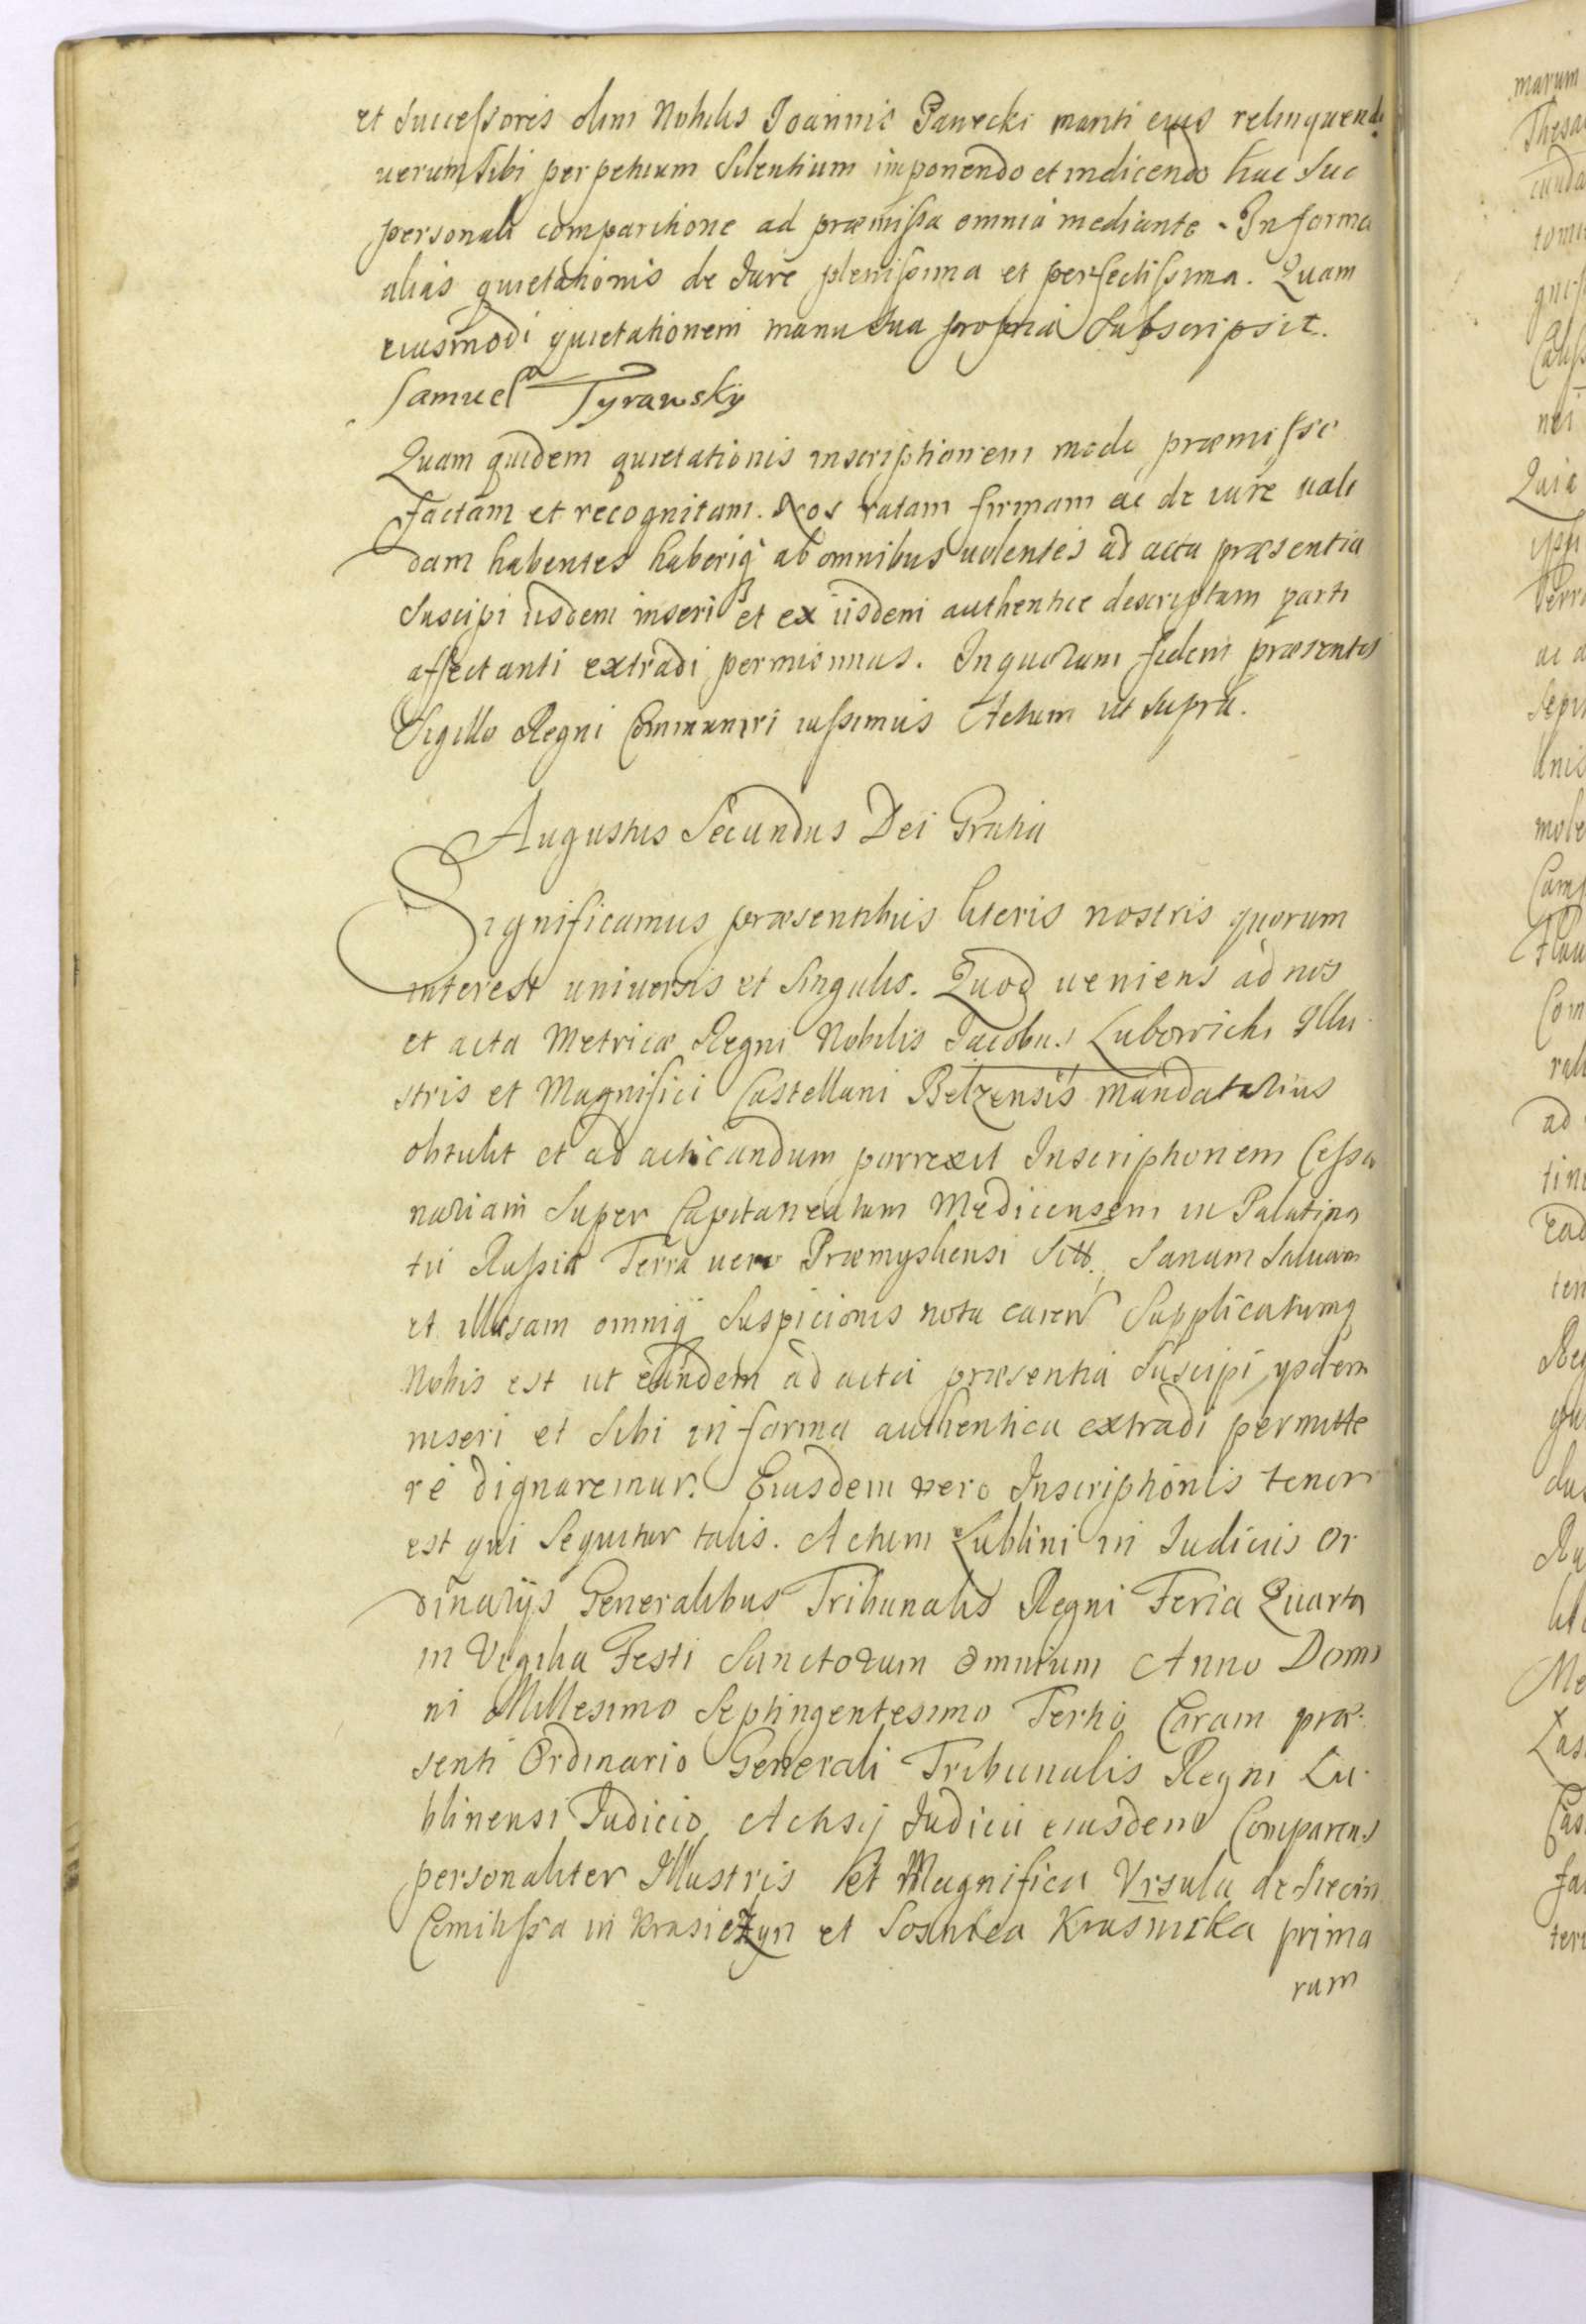 et Successoris olim Nobilis Joannis Panecki mariti eius relinquendo
uerum sibi perpetuum Silentium imponendo et indicendo hac sua
personali comparitione ad præmissa omnia mediante. In forma
alias quietationis de Iure plenissima et perfectissima. Quam
eiusmodi quietationem manu sua propria Subscripsit.
Samuel Tyrawskÿ
Quam quidem quietationis inscriptionem modo præmisso
factam et recognitam. Nos ratam firmam ac de iure uali
dam habentes haberiq ab omnibus uolentes ad acta præsentia
Suscipi iisdem inseri et ex iisdem authentice descriptam parti
affectanti extradi permisimus. In quorum fidem præsentes
Sigillo Regni Communiri iussimus Actum ut supra.
Augustus Secundus Dei Gratia
Significamus præsentibus literis nostris quorum
interest uniuersis et Singulis. Quod ueniens ad nos
et acta Metricæ Regni Nobilis Jacobus Lubowicki Illu
stris et Magnifici Castellani Belzensis Mandatarius
obtulit et ad acticandum porrexit Inscriptionem Cessio
nariam Super Capitaneatum Medicensem in Palatina
tu Russiæ Terra uero Præmysliensi Sitt. Sanam Saluam
et illæsam omniq Suspicionis nota caren Supplicatumq
Nobis est ut eandem ad acta præsentia Suscipi ysdem
inseri et Sibi in forma authentica extradi permitte
re dignaremur. Eiusdem vero Inscriptionis tenor
est qui Sequitur talis. Actum Lublini in Iudiciis Or
dinarijs Generalibus Tribunalis Regni Feria Quarta
in Vigilia Festi Sanctorum Omnium Anno Domi
ni Millesimo Septingentesimo Tertio Coram præ
senti Ordinario Generali Tribunalis Regni Lu
blinensi Iudicio Actisq Iudicii eiusdem Comparens
personaliter Illustris et Magnifica Vrsula de Siecin
Comitissa in Krasiczyn et Sosnica Krasinska prima
rum